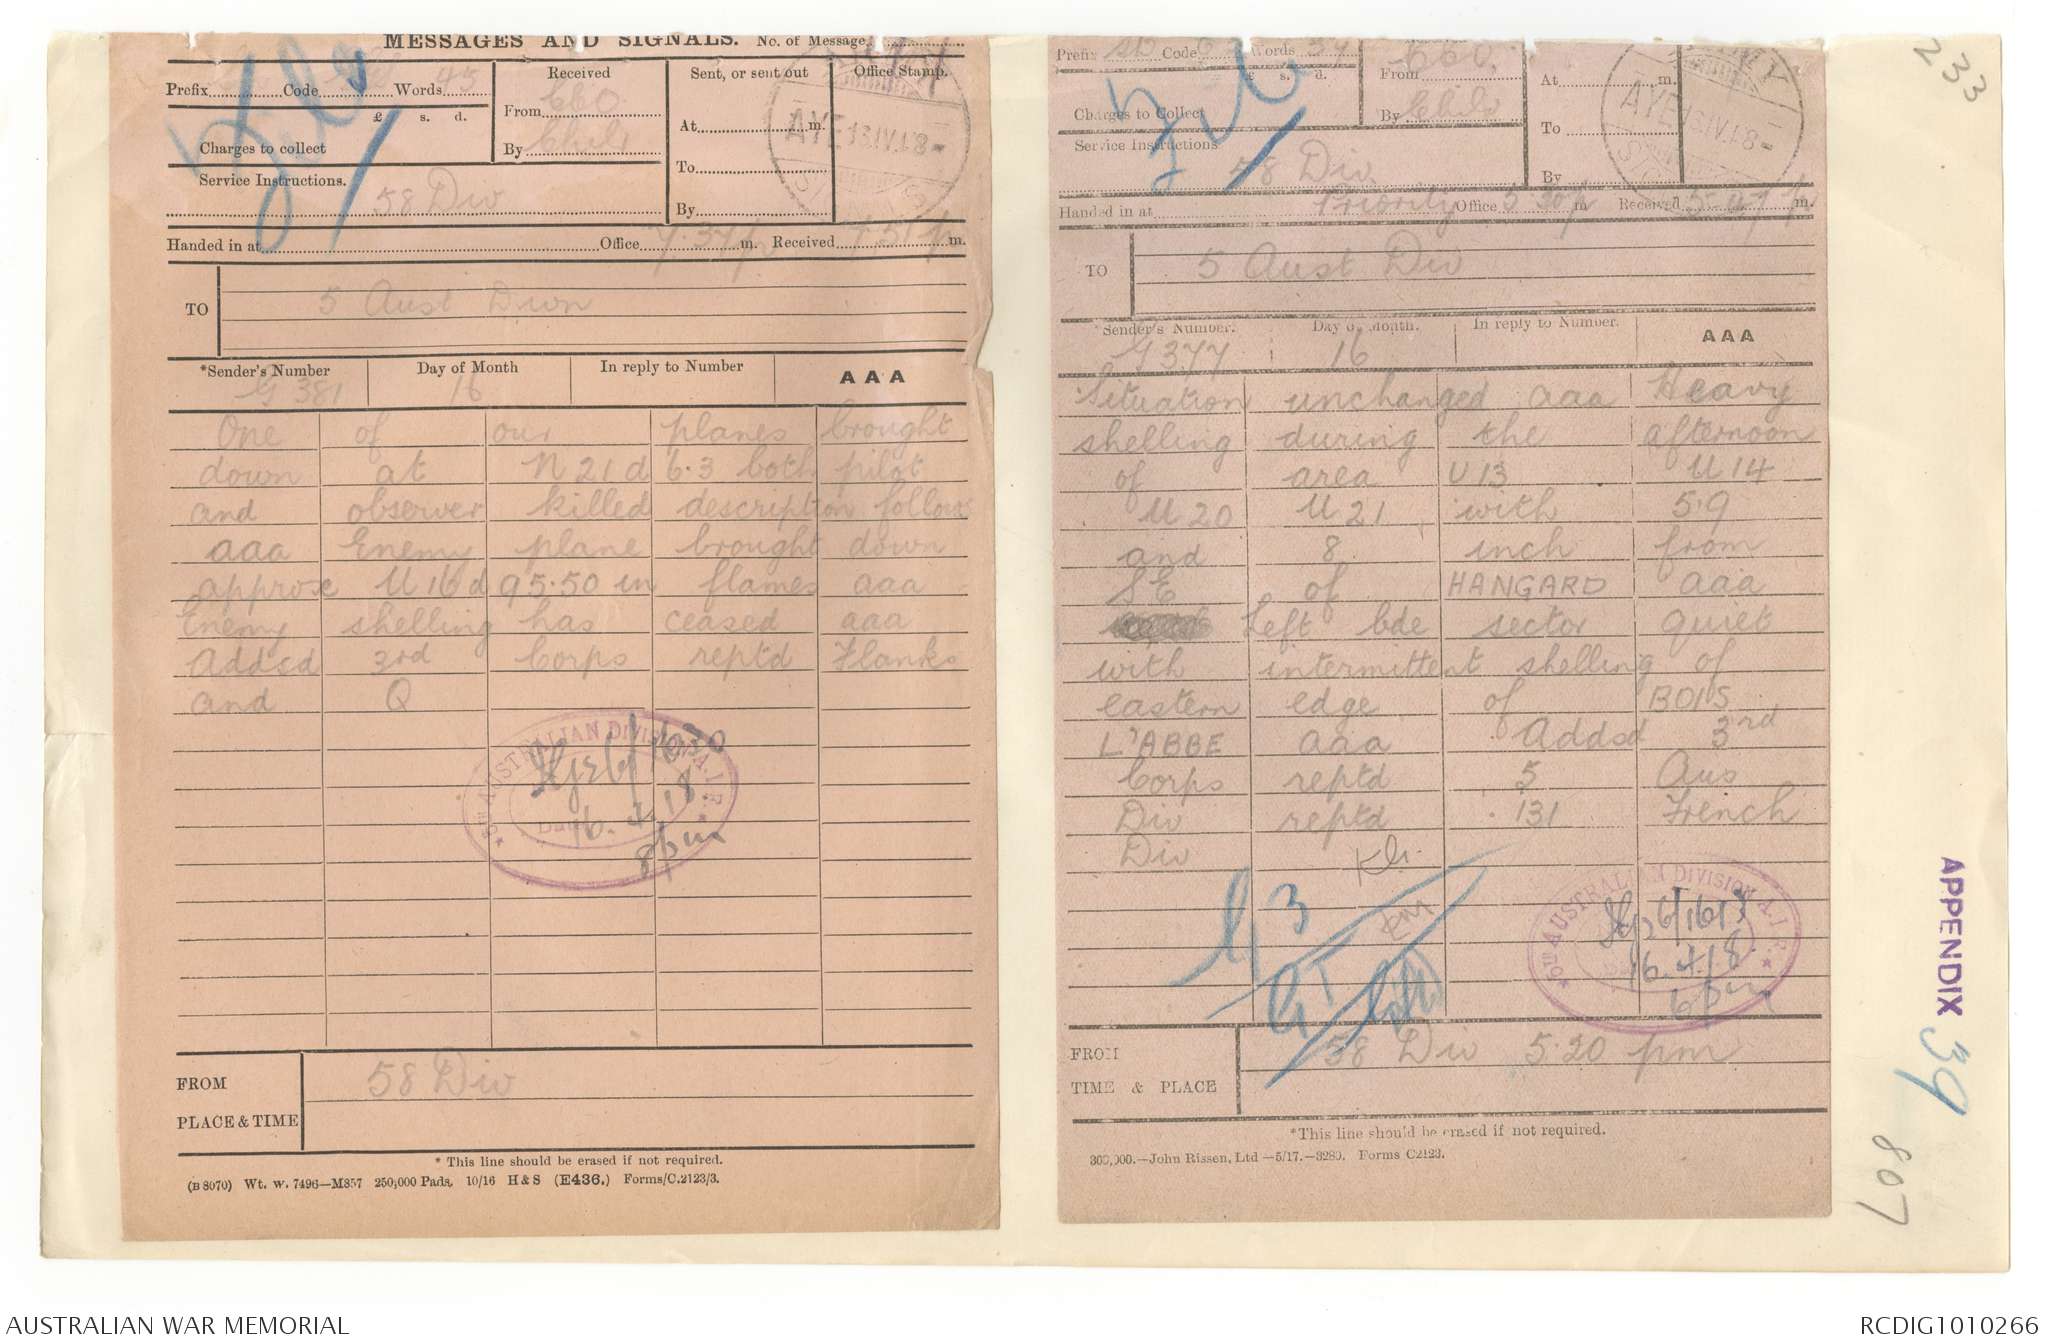 MESSAGES AND SIGNALS. No. of Message
Prefix Code Words 45
£ s. d.
Charges to collect
Service Instructions.
58 Div
Received
From
By
Sent, or sent out
At m.
To
By
Office Stamp.
ARMY
AYE 13.IV.18
Handed in at Office 7.37 p m. Received 7.51 p m.
TO
5 Aust Divn
*Sender's Number Day of Month In reply to Number AAA
G 381 16
One of our planes brought
down at N 21 d 6.3 both pilot
and observer killed description follows
aaa Enemy plane brought down
approx U 16 d 95.50 in flames aaa
Enemy shelling has ceased aaa
Addsd 3rd Corps reptd Flanks
and Q
5TH AUSTRALIAN DIVISION A.I.F.
16.4.18
8pm
FROM 58 Div
PLACE & TIME
* This line should be erased if not required.
(B 8070) Wt. W. 7496—M857 250,000 Pads. 10/16 H & S (E436.) Forms/C.2123/3.
Prefix SB Code Words
£ s. d.
Charges to Collect
Service Instructions.
58 Div
Priority
From
By
At m.
To
By
ARMY
AYE 13.IV.18
Handed in at Office 5 30 p m Received 5.47 p m.
TO
5 Aust Div
*Sender's Number. Day of Month. In reply to Number. AAA
G377 16
Situation unchanged aaa Heavy
shelling during the afternoon
of area U13 U14
U20 U21 with 5.9
and 8 inch from
SE of HANGARD aaa
Left bde sector quiet
with intermittent shelling of
eastern edge of BOIS
L'ABBE aaa Addsd 3rd
Corps reptd 5 Aus
Div reptd 131 French
Div
G3
GT
5TH AUSTRALIAN DIVISION A.I.F.
16.4.18
6pm
FROM 58 Div 5.20 pm
TIME & PLACE
*This line should be erased if not required.
300,000.—John Rissen, Ltd —5/17.—3280. Forms C2123.
233
APPENDIX 39
807
AUSTRALIAN WAR MEMORIAL
RCDIG1010266